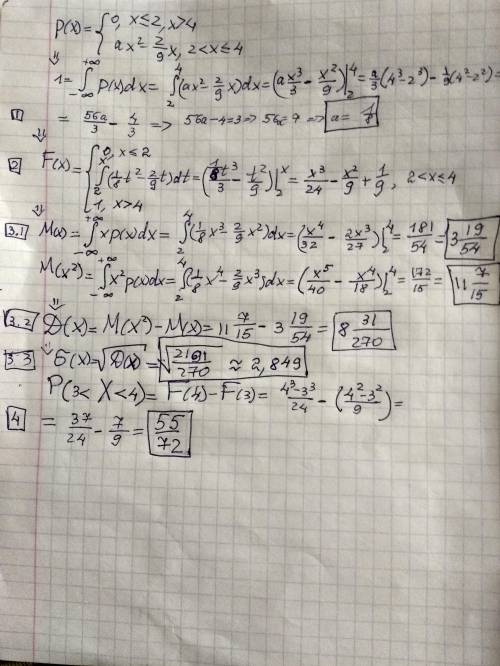 p(x)= { 0, x≤2, x>4
ax² - 2/9 x, 2<x≤4
⇓
1 = ∫_{-∞}^{+∞} p(x)dx = ∫_2^4 (ax² - 2/9 x)dx = (ax³/3 - x²/9)|_2^4 = a/3 (4³-2³) - 1/9 (4²-2²) =
1 = 56a/3 - 4/3 => 56a-4=3 => 56a=7 => a= 1/8
⇓
2 F(x)= { 0, x≤2
∫_2^x (1/8 t² 2/9 t)dt = (1/8 t³/3 - t²/9)|_2^x = x³/24 - x²/9 + 1/9, 2<x≤4
1, x>4
⇓
3.1 M(x) = ∫_{-∞}^{+∞} xp(x)dx = ∫_2^4 (1/8 x³ - 2/9 x²)dx = (x⁴/32 - 2x³/27)|_2^4 = 181/54 = 3 19/54
M(x²) = ∫_{-∞}^{+∞} x²p(x)dx = ∫_2^4 (1/8 x⁴ - 2/9 x³)dx = (x⁵/40 - x⁴/18)|_2^4 = 172/15 = 11 7/15
⇓
3.2 Д(x) = M(x²) - M(x) = 11 7/15 - 3 19/54 = 8 31/270
3.3 ⇓ б(x) = √Д(x) = √(2191/270) ≈ 2,849
P(3< X<4) = F(4) - F(3) = (4³-3³)/24 - ((4²-3²)/9) =
4 = 37/24 - 7/9 = 55/72